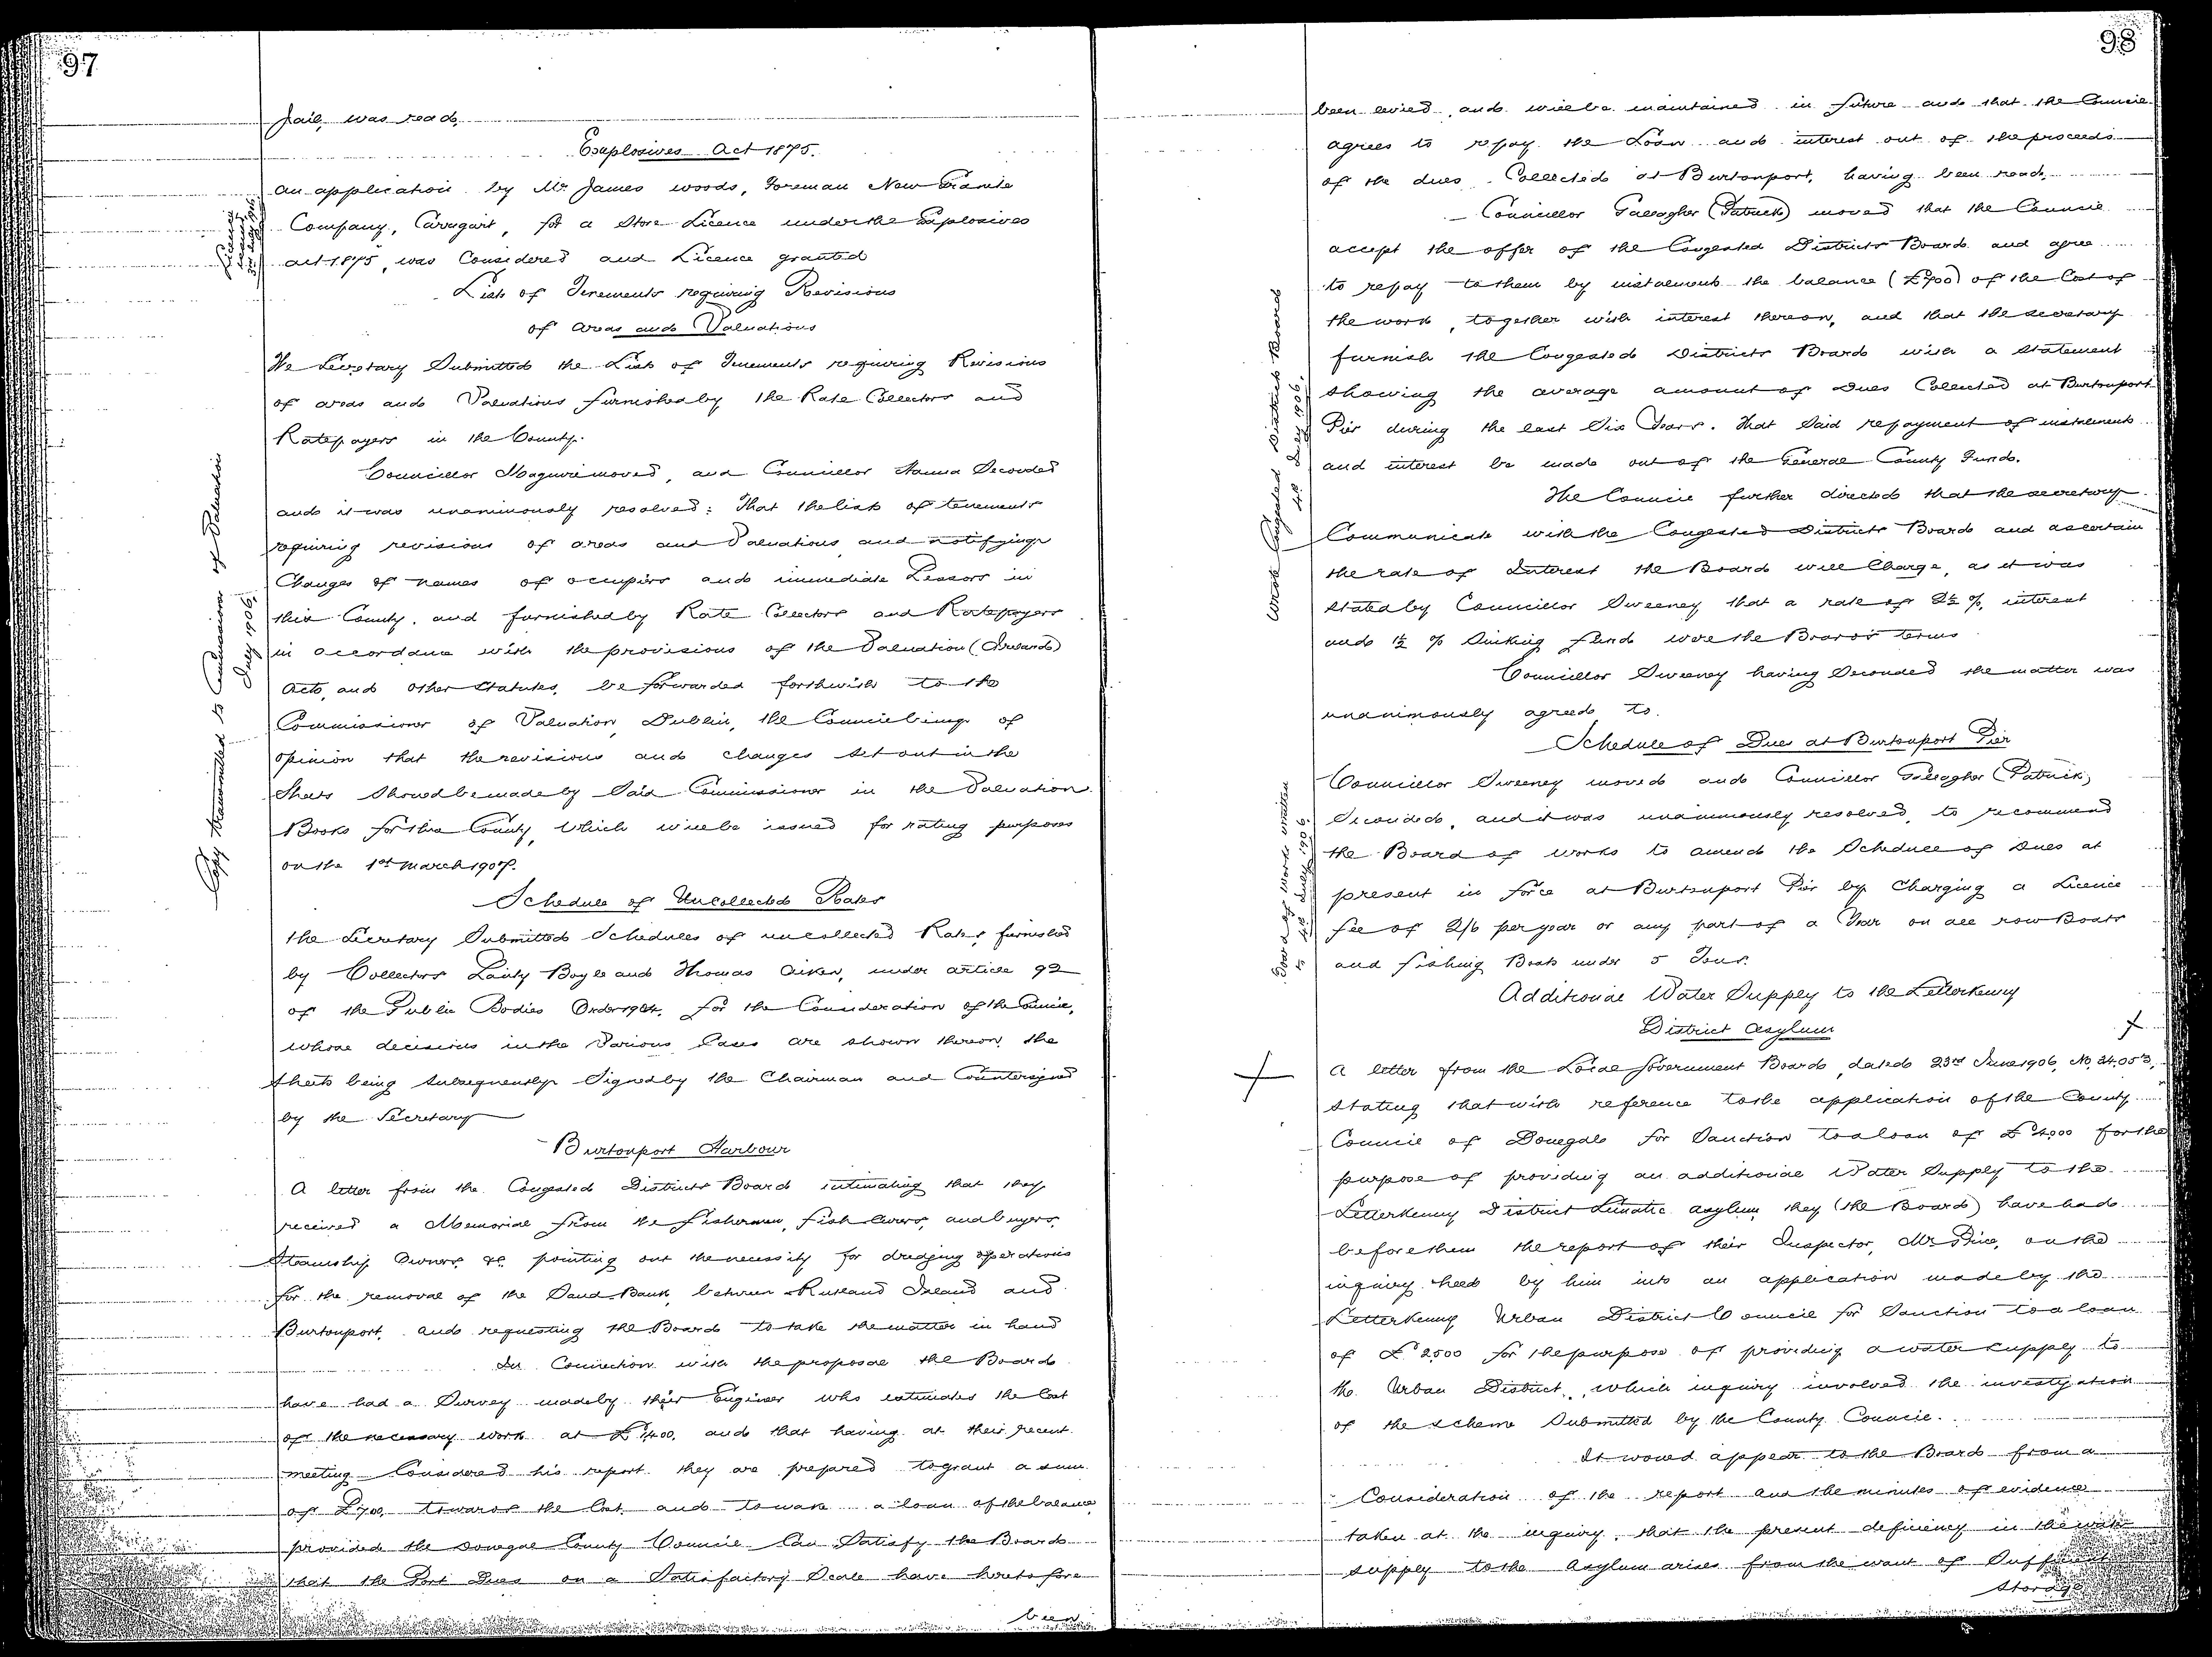 97
Jail, was read.
Explosives Act 1875.
An application by Mr James Woods, Foreman New Granite
Company, Carrigart, for a Store Licence under the Explosives
Act 1875, was Considered and Licence granted
Licence
issued
List of Tenements requiring Revisions
of Areas and Valuations
The Secretary Submitted the List of Tenements requiring Revisions
of areas and Valuations furnished by the Rate Collectors and
Ratepayers in the County.
Councillor Maguire moved, and Councillor Hanna Seconded
and it was unanimously resolved: That the list of tenements
requiring revisions of areas and Valuations, and notifying
Changes of names of occupiers and immediate Lessors in
this County, and furnished by Rate Collectors and Ratepayers
in accordance with the provisions of the Valuation (Ireland)
Acts, and other Statutes, be forwarded forthwith to the
Commissioner of Valuation, Dublin, the Council being of
opinion that the revisions and changes set out in the
Sheets Should be made by Said Commissioner in the Valuation
Books for this County, which will be issued for rating purposes
on the 1st March 1907.
Copy transmitted to Commissioner of Valuation
July 1906.
Schedule of Uncollected Rates
The Secretary Submitted Schedules of uncollected Rates, furnished
by Collectors Lanty Boyle and Thomas Aiken, under article 92
of the Public Bodies Order 1904, for the Consideration of the Council,
whose decisions in the Various Cases are shown thereon, the
sheets being subsequently Signed by the Chairman and Countersigned
by the Secretary
Burtonport Harbour
A letter from the Congested Districts Board intimating that they
received a Memorial from the fishermen, fish Curers, and buyers,
Steamship Owners &c. pointing out the necessity for dredging operations
for the removal of the Sand Bank, between Rutland Island and
Burtonport, and requesting the Board to take the matter in hand
In Connection with the proposal the Board
have had a Survey made by their Engineer who estimates the Cost
of the necessary work at £1,400, and that having at their recent
meeting Considered his report they are prepared to grant a sum
of £700, towards the Cost and to make a loan of the balance
provided the Donegal County Council Can Satisfy the Board
that the Port Dues on a Satisfactory Scale have heretofore
been
98
been levied, and will be maintained in future and that the Council
agrees to repay the Loan and interest out of the proceeds
of the dues Collected at Burtonport, having been read,
Councillor Gallagher (Patrick) moved that the Council
accept the offer of the Congested Districts Board and agree
to repay to them by instalments the balance (£700) of the Cost of
the work, together with interest thereon, and that the secretary
furnish the Congested Districts Board with a Statement
showing the average amount of Dues Collected at Burtonport
Pier during the last Six Years. That Said repayment of instalments
and interest be made out of the General County Funds.
The Council further directed that the secretary
Communicate with the Congested Districts Board and ascertain
the rate of Interest the Board will Charge, as it was
stated by Councillor Sweeney that a rate of 2½ % interest
and 1½ % Sinking Fund were the Board's terms
Wrote Congested Districts Board
4th July 1906.
Councillor Sweeney having Seconded the matter was
unanimously agreed to.
Schedule of Dues at Burtonport Pier
Councillor Sweeney moved and Councillor Gallagher (Patrick)
Seconded, and it was unanimously resolved, to recommend
the Board of Works to amend the Schedule of Dues at
present in force at Burtonport Pier by Charging a Licence
fee of 2/6 per year or any part of a Year on all row Boats
and fishing Boats under 5 Tons.
Board of Works written
to 4th July 1906.
Additional Water Supply to the Letterkenny
District Asylum
A letter from the Local Government Board, dated 23rd June 1906, No. 34,053,
stating that with reference to the application of the County
Council of Donegal for Sanction to a loan of £4,000 for the
purpose of providing an additional Water Supply to the
Letterkenny District Lunatic Asylum, they (the Board) have had
before them the report of their Inspector, Mr Price, on the
inquiry held by him into an application made by the
Letterkenny Urban District Council for Sanction to a loan
of £2,500 for the purpose of providing a water supply to
the Urban District, which inquiry involved the investigation
of the scheme Submitted by the County Council.
It would appear to the Board from a
Consideration of the report and the minutes of evidence
taken at the inquiry, that the present deficiency in the water
supply to the Asylum arises from the want of Sufficient
storage